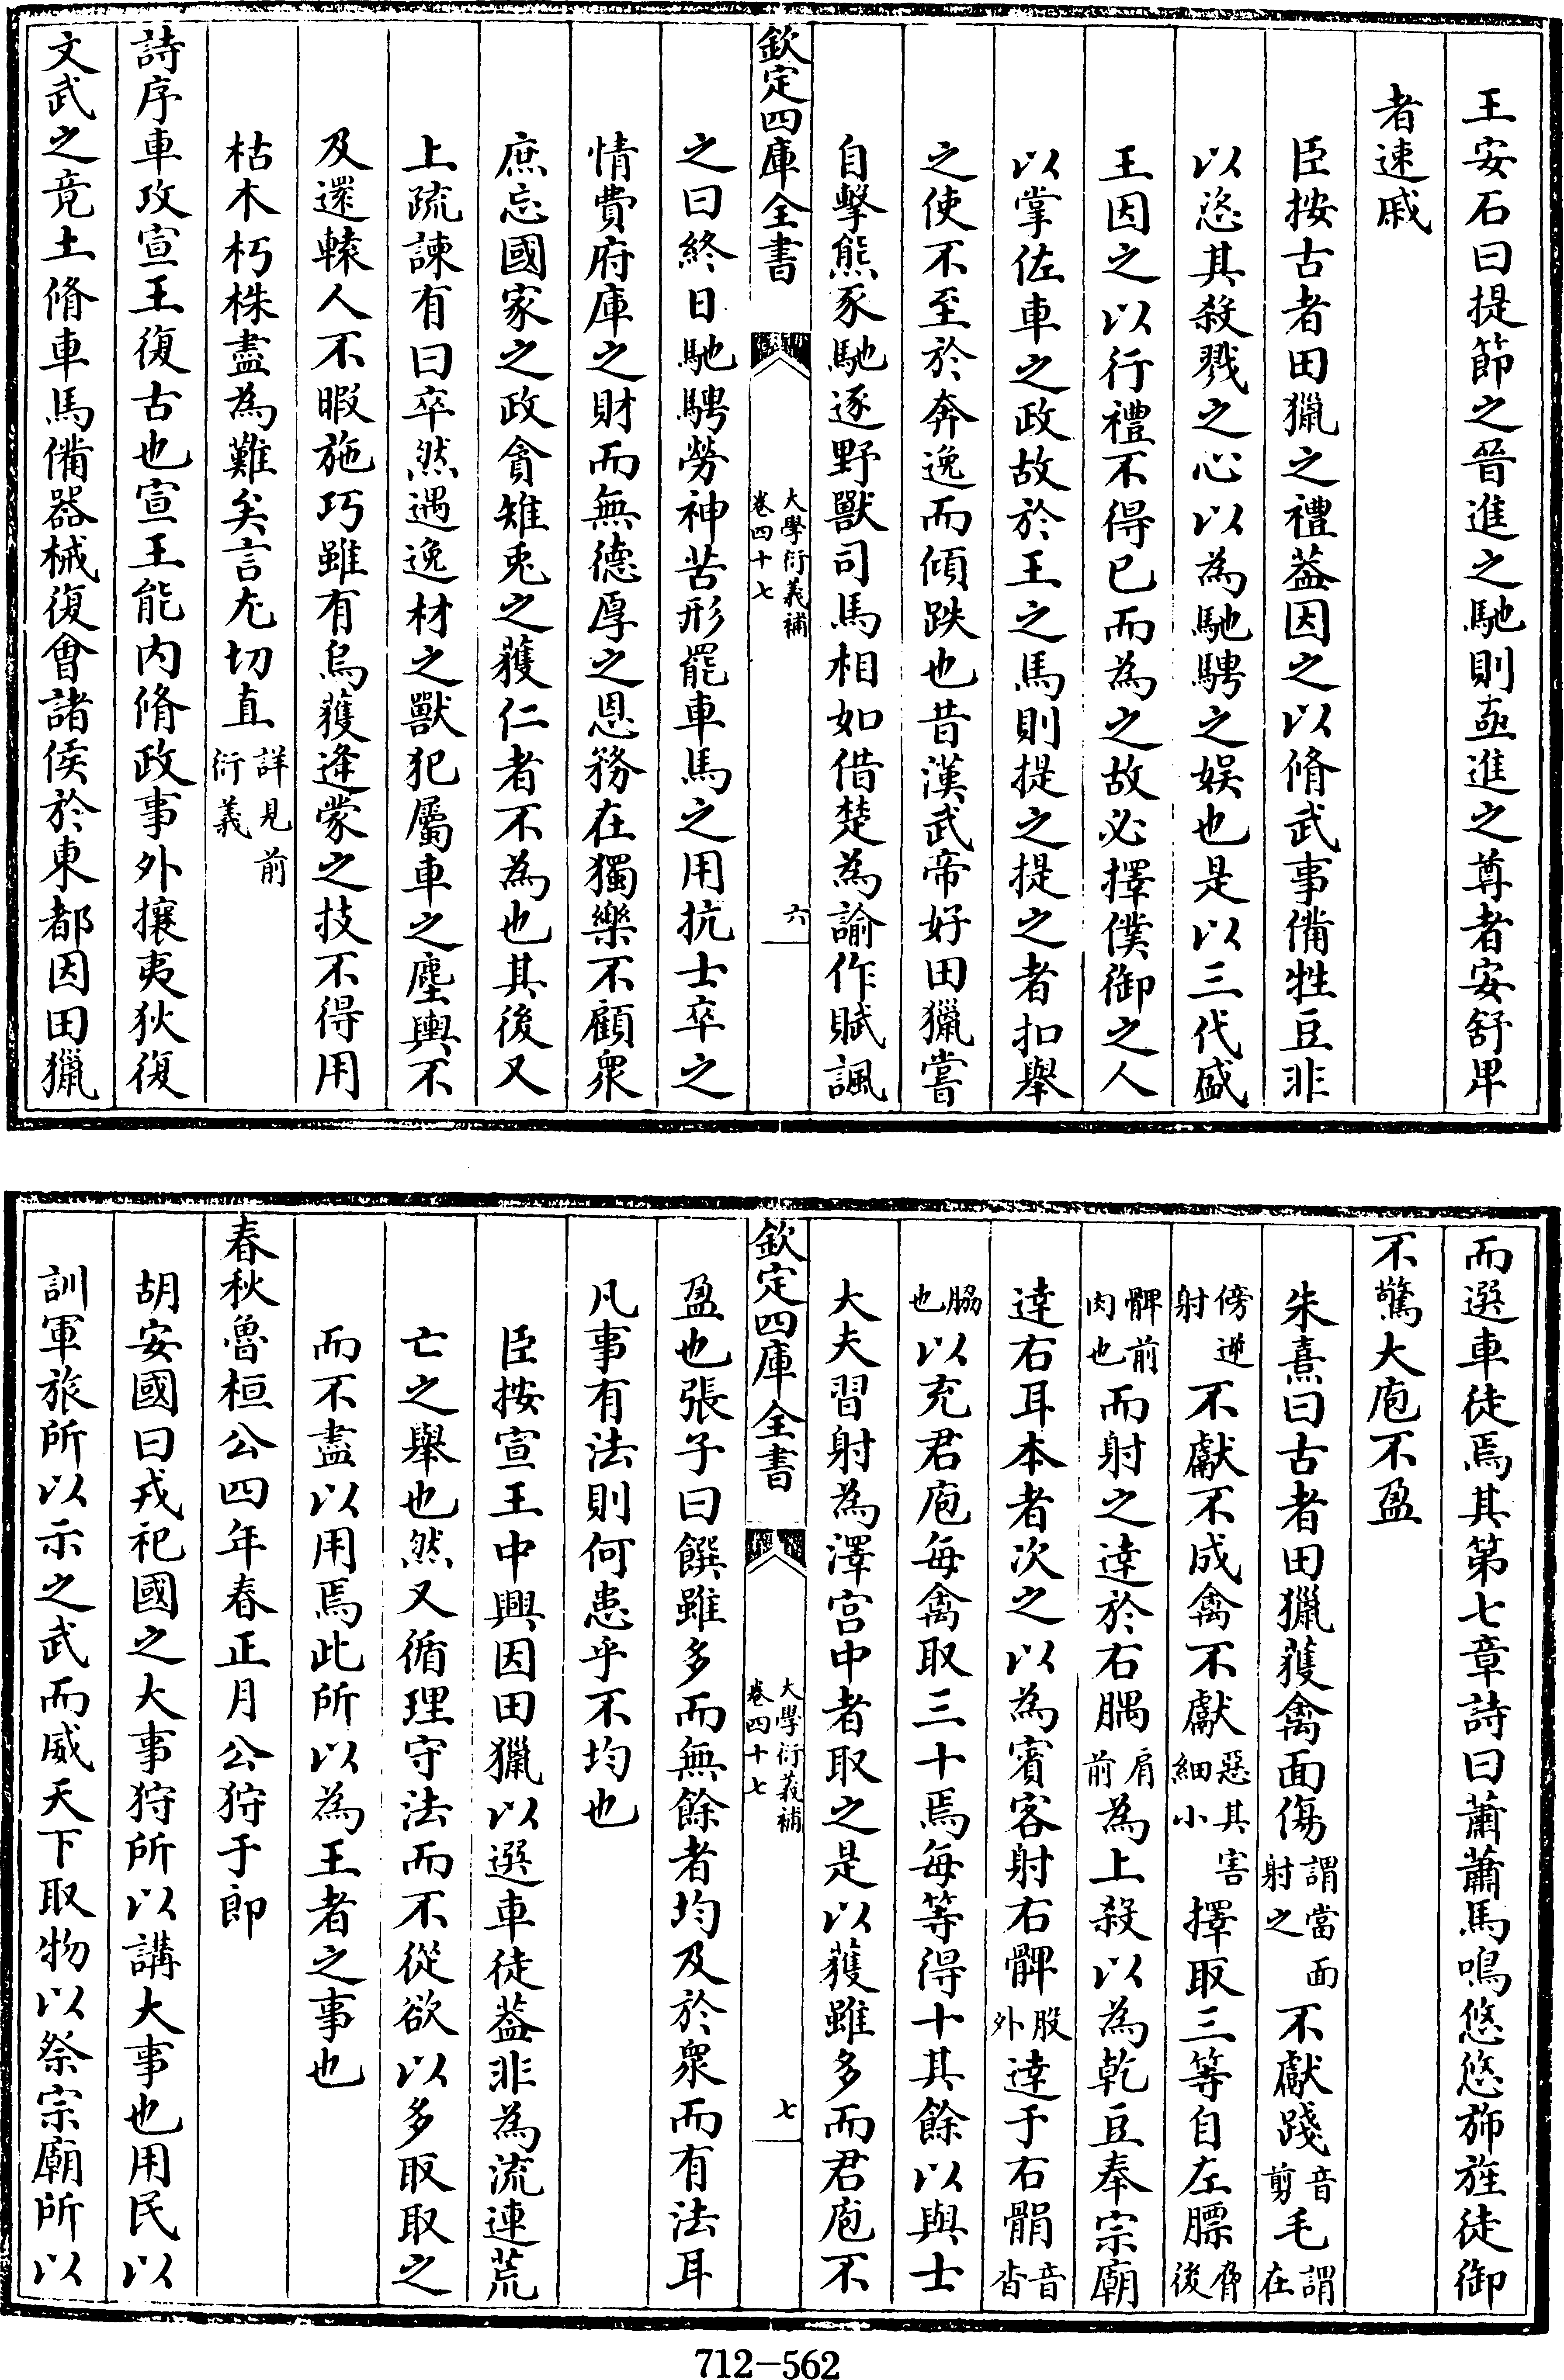 王安石曰提節之晉進之馳則亟進之尊者安舒卑
者速戚
臣按古者田獵之禮葢因之以脩武事備牲豆非
以恣其殺戮之心以為馳騁之娱也是以三代盛
王因之以行禮不得已而為之故必擇僕御之人
以掌佐車之政故於王之馬則提之提之者扣舉
之使不至於奔逸而傾跌也昔漢武帝好田獵嘗
自擊熊豕馳逐野獸司馬相如借楚為諭作賦諷
欽定四庫全書
大學衍義補
卷四十七
六
之曰終日馳騁勞神苦形罷車馬之用抗士卒之
情費府庫之財而無德厚之恩務在獨樂不顧衆
庶忘國家之政貪雉兎之獲仁者不為也其後又
上疏諫有曰卒然遇逸材之獸犯屬車之塵輿不
及還轅人不暇施巧雖有烏獲逢蒙之技不得用
枯木朽株盡為難矣言尤切直詳見前衍義
詩序車攻宣王復古也宣王能内脩政事外攘夷狄復
文武之竟土脩車馬備器械復㑹諸侯於東都因田獵
而選車徒焉其第七章詩曰蕭蕭馬鳴悠悠斾旌徒御
不驚大庖不盈
朱熹曰古者田獵獲禽面傷謂當面射之不獻踐音剪毛謂在
傍逆射不獻不成禽不獻惡其害細小擇取三等自左膘脅後
髀前肉也而射之達於右腢肩前為上殺以為乾豆奉宗廟
達右耳本者次之以為賓客射右髀股外達于右䯚音杳
脇也以充君庖每禽取三十焉每等得十其餘以與士
大夫習射為澤宫中者取之是以獲雖多而君庖不
欽定四庫全書
大學衍義補
卷四十七
七
盈也張子曰饌雖多而無餘者均及於衆而有法耳
凡事有法則何患乎不均也
臣按宣王中興因田獵以選車徒葢非為流連荒
亡之舉也然又循理守法而不從欲以多取取之
而不盡以用焉此所以為王者之事也
春秋魯桓公四年春正月公狩于郎
胡安國曰戎祀國之大事狩所以講大事也用民以
訓軍旅所以示之武而威天下取物以祭宗廟所以
712-562